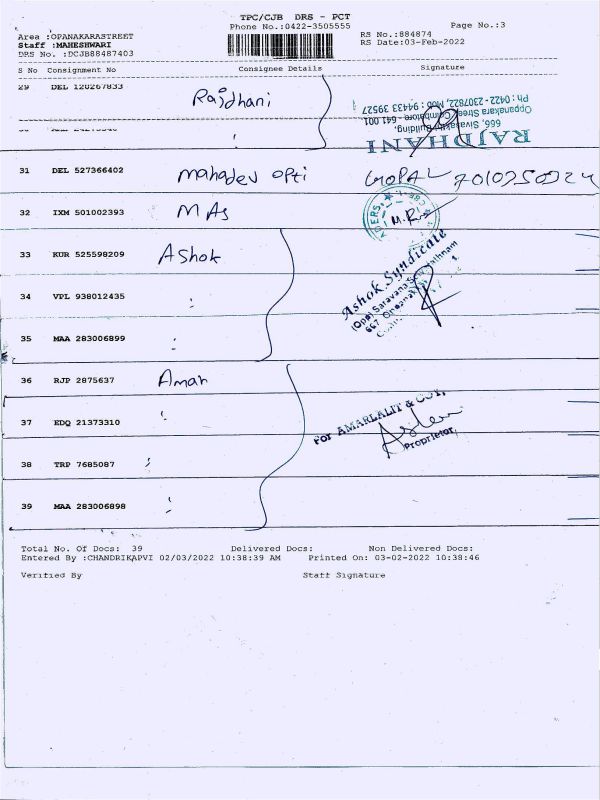 TPC/CJB DRS - PCT
Phone No.:0422-3505555 Page No.:3
Area :OPANAKARASTREET RS No.:884874
Staff :MAHESHWARI RS Date:03-Feb-2022
DRS No. :DCJB88487403
S No Consignment No Consignee Details Signature
29 DEL 120267833 Rajdhani
RAJDHANI
666, Sivasakthi Building,
Oppanakara Street, Coimbatore - 641 001
Ph : 0422 - 2307822, Mob : 94433 39527
31 DEL 527366402 mahadev opti GOPAL
32 IXM 501002393 MAS
33 KUR 525598209 Ashok
Ashok Syndicate
34 VPL 938012435
35 MAA 283006899
36 RJP 2875637 Amar
For AMARLALIT &
Proprietor
37 EDQ 21373310
38 TRP 7685087
39 MAA 283006898
Total No. Of Docs: 39 Delivered Docs: Non Delivered Docs:
Entered By :CHANDRIKAPVI 02/03/2022 10:38:39 AM Printed On: 03-02-2022 10:38:46
Verified By Staff Signature